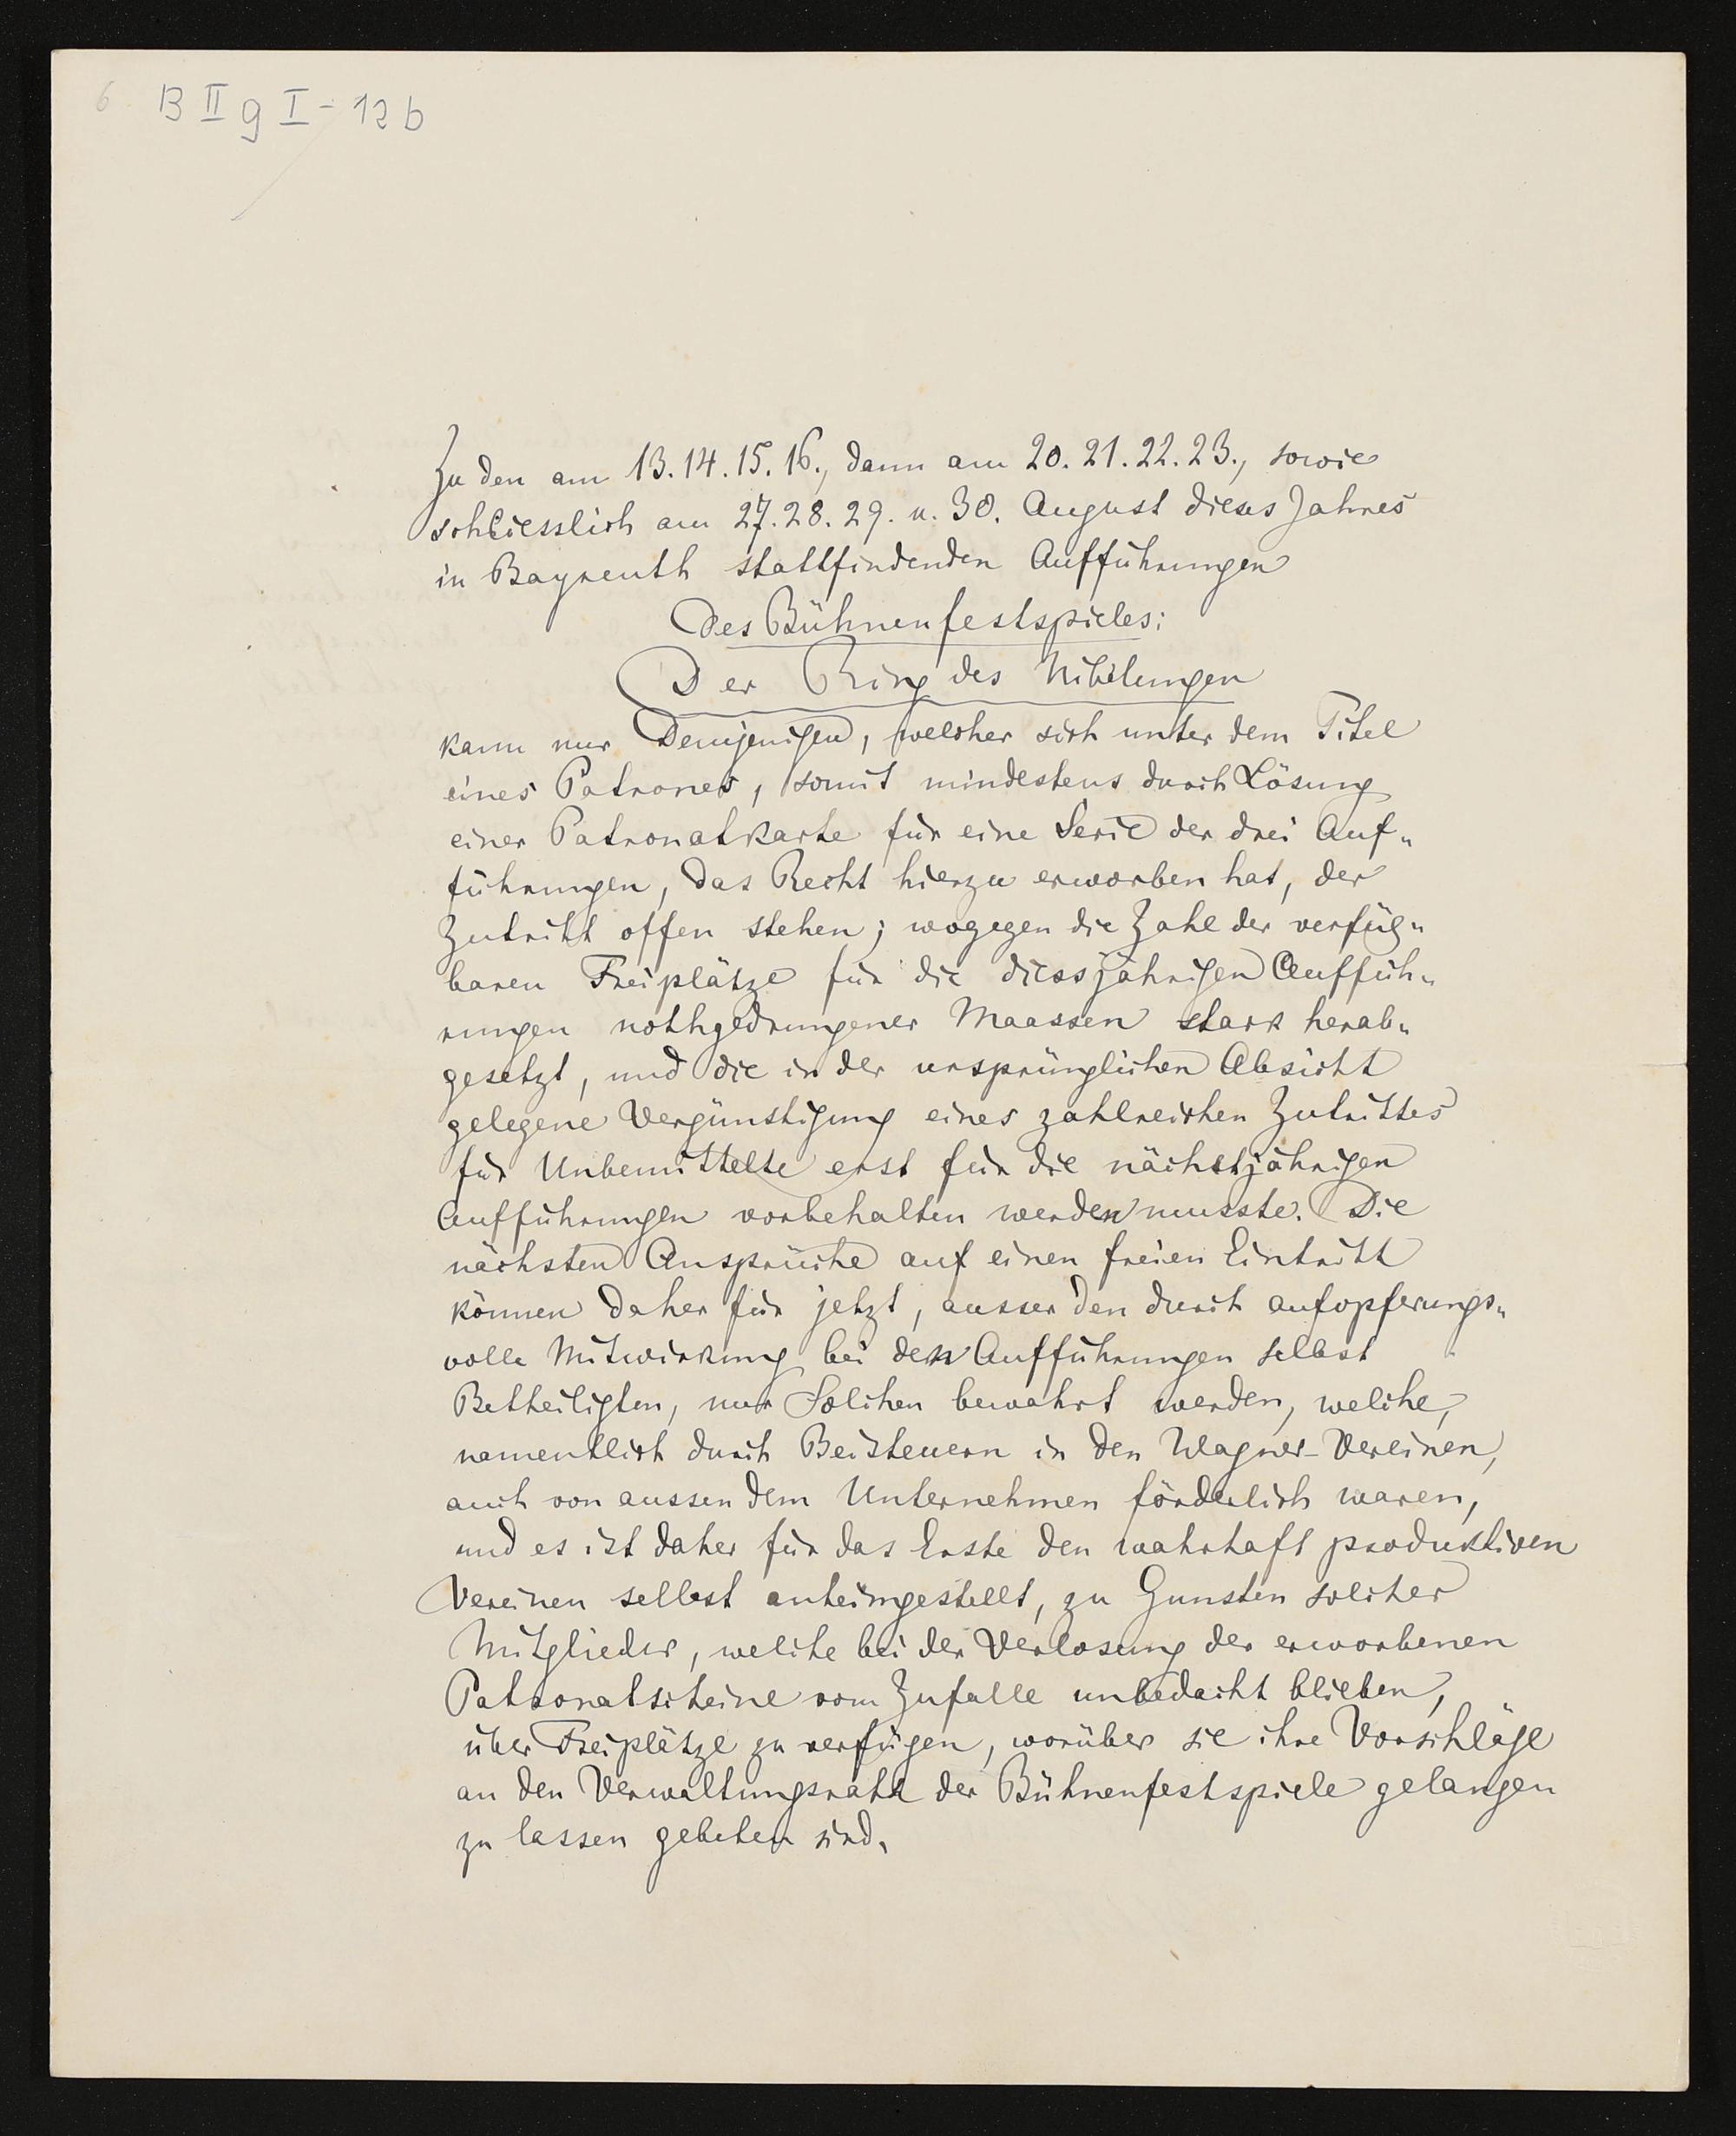 6. B II g I - 12 b
Zu den am 13. 14. 15. 16., dann am 20. 21. 22. 23., sowie
schliesslich am 27. 28. 29. u. 30. August dieses Jahres
in Bayreuth stattfindenden Aufführungen
Des Bühnenfestspieles:
Der Ring des Nibelungen
kann nur Demjenigen, welcher sich unter dem Titel
eines Patrones, somit mindestens durch Lösung
einer Patronatkarte für eine Serie der drei Auf„
führungen, das Recht hierzu erworben hat, der
Zutritt offen stehen; wogegen die Zahl der verfüg„
baren Freiplätze für die diessjährigen Auffüh„
rungen nothgedrungener Maassen stark herab„
gesetzt, und die in der ursprünglichen Absicht
gelegene Vergünstigung eines zahlreichen Zutrittes
für Unbemittelte erst für die nächstjährigen
Aufführungen vorbehalten werden musste. Die
nächsten Ansprüche auf einen freien Eintritt
können daher für jetzt, ausser den durch aufopferungs„
volle Mitwirkung bei den Aufführungen selbst
Betheiligten, nur Solchen bewahrt werden, welche,
namentlich durch Beisteuern in den Wagner-Vereinen,
auch von aussen dem Unternehmen förderlich waren,
und es ist daher für das Erste den wahrhaft produktiven
Vereinen selbst anheimgestellt, zu Gunsten solcher
Mitglieder, welche bei der Verlosung der erworbenen
Patronatscheine vom Zufalle unbedacht blieben,
über Freiplätze zu verfügen, worüber sie ihre Vorschläge
an den Verwaltungsrath der Bühnenfestspiele gelangen
zu lassen gebeten sind.